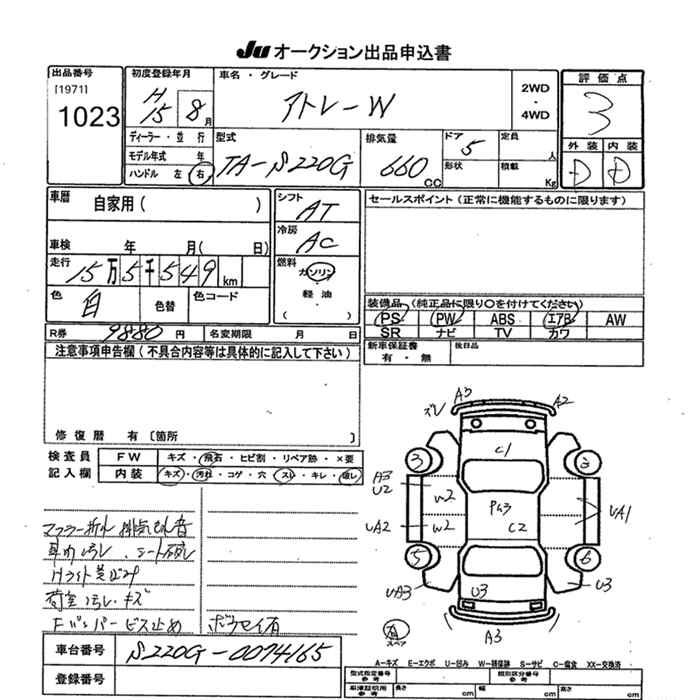 JU オークション出品申込書
出品番号
[1971]
1023
初度登録年月
H15 8月
車名・グレード
アトレーW
2WD
・
4WD
評価点
3
外装 内装
D D
ディーラー・並行
モデル年式 年
ハンドル 左 右
型式
TA-S220G
排気量
660 CC
ドア
5
形状
定員
人
積載
Kg
車歴
自家用( )
車検 年 月( 日)
走行
15万5千549km
色
白
色替
色コード
R券 9880円
名変期限 月 日
シフト
AT
冷房
AC
燃料
ガソリン
・
軽油
( )
セールスポイント(正常に機能するものに限ります)
装備品(純正品に限り○を付けてください)
PS PW ABS エアB AW
SR ナビ TV カワ
新車保証書
有・無
後日品
注意事項申告欄(不具合内容等は具体的に記入して下さい)
修復歴 有 〔箇所 〕
検査員
記入欄
FW キズ・飛石・ヒビ割・リペア跡・×要
内装 キズ・汚れ・コゲ・穴・スレ・キレ・破し
マフラー折れ 排気もれ音
車内汚れ、シート破れ
Hライト黄ばみ
荷室汚れ・キズ
Fバンパービス止め
ボウセイ有
A3
ズレ
A2
C1
3
3
A3
U2
W2
PG3
UA1
UA2
W2
C2
5
6
UA3
U3
U3
A3
有
スペア
車台番号
S220G-0074165
登録番号
A-キズ E-エクボ U-凹み W-補修跡 S-サビ C-腐食 XX-交換済
型式指定番号
参考
類別区分番号
参考
車検証証用
参考
長さ cm
幅 cm
高さ cm